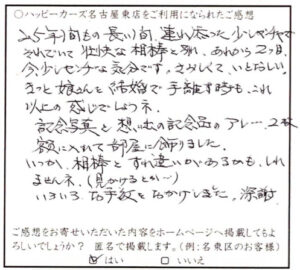 ○ハッピーカーズ名古屋東店をご利用になられたご感想
25年間もの長い間、連れ添った、少しヤンチャで
それでいて壮快な相棒と別れ、あれから2ヶ月、
今少しセンチな気分です。さみしくて いとおしい。
きっと娘さんを結婚で手離す時も、これ
以上の感じでしょうネ。
記念写真と想い出の記念品のアレ… 2枚
額に入れて部屋に飾りました。
いつか、相棒とすれ違いがあるかも、しれ
ませんネ。(見かけるとか〜)
いろいろ お手数をおかけしました。深謝
ご感想をお寄せいただいた内容をホームページへ掲載してもよ
ろしいでしょうか? 匿名で掲載します。(例:名東区のお客様)
☑はい □いいえ